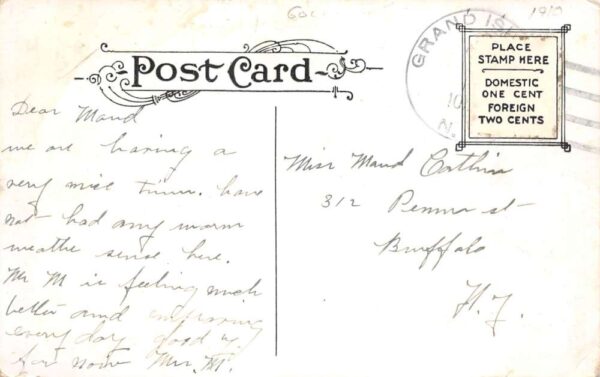 60c
1910
GRAND ISL
10
N.
Post Card
PLACE
STAMP HERE
DOMESTIC
ONE CENT
FOREIGN
TWO CENTS
Dear Maud
we are having a
very nice time. have
not had any warm
weathe sence here.
Mr M is feeling much
better and
every day good by
for now Mrs. M.
Miss Maud
312 Penna st
Bruffalo
N. Y.